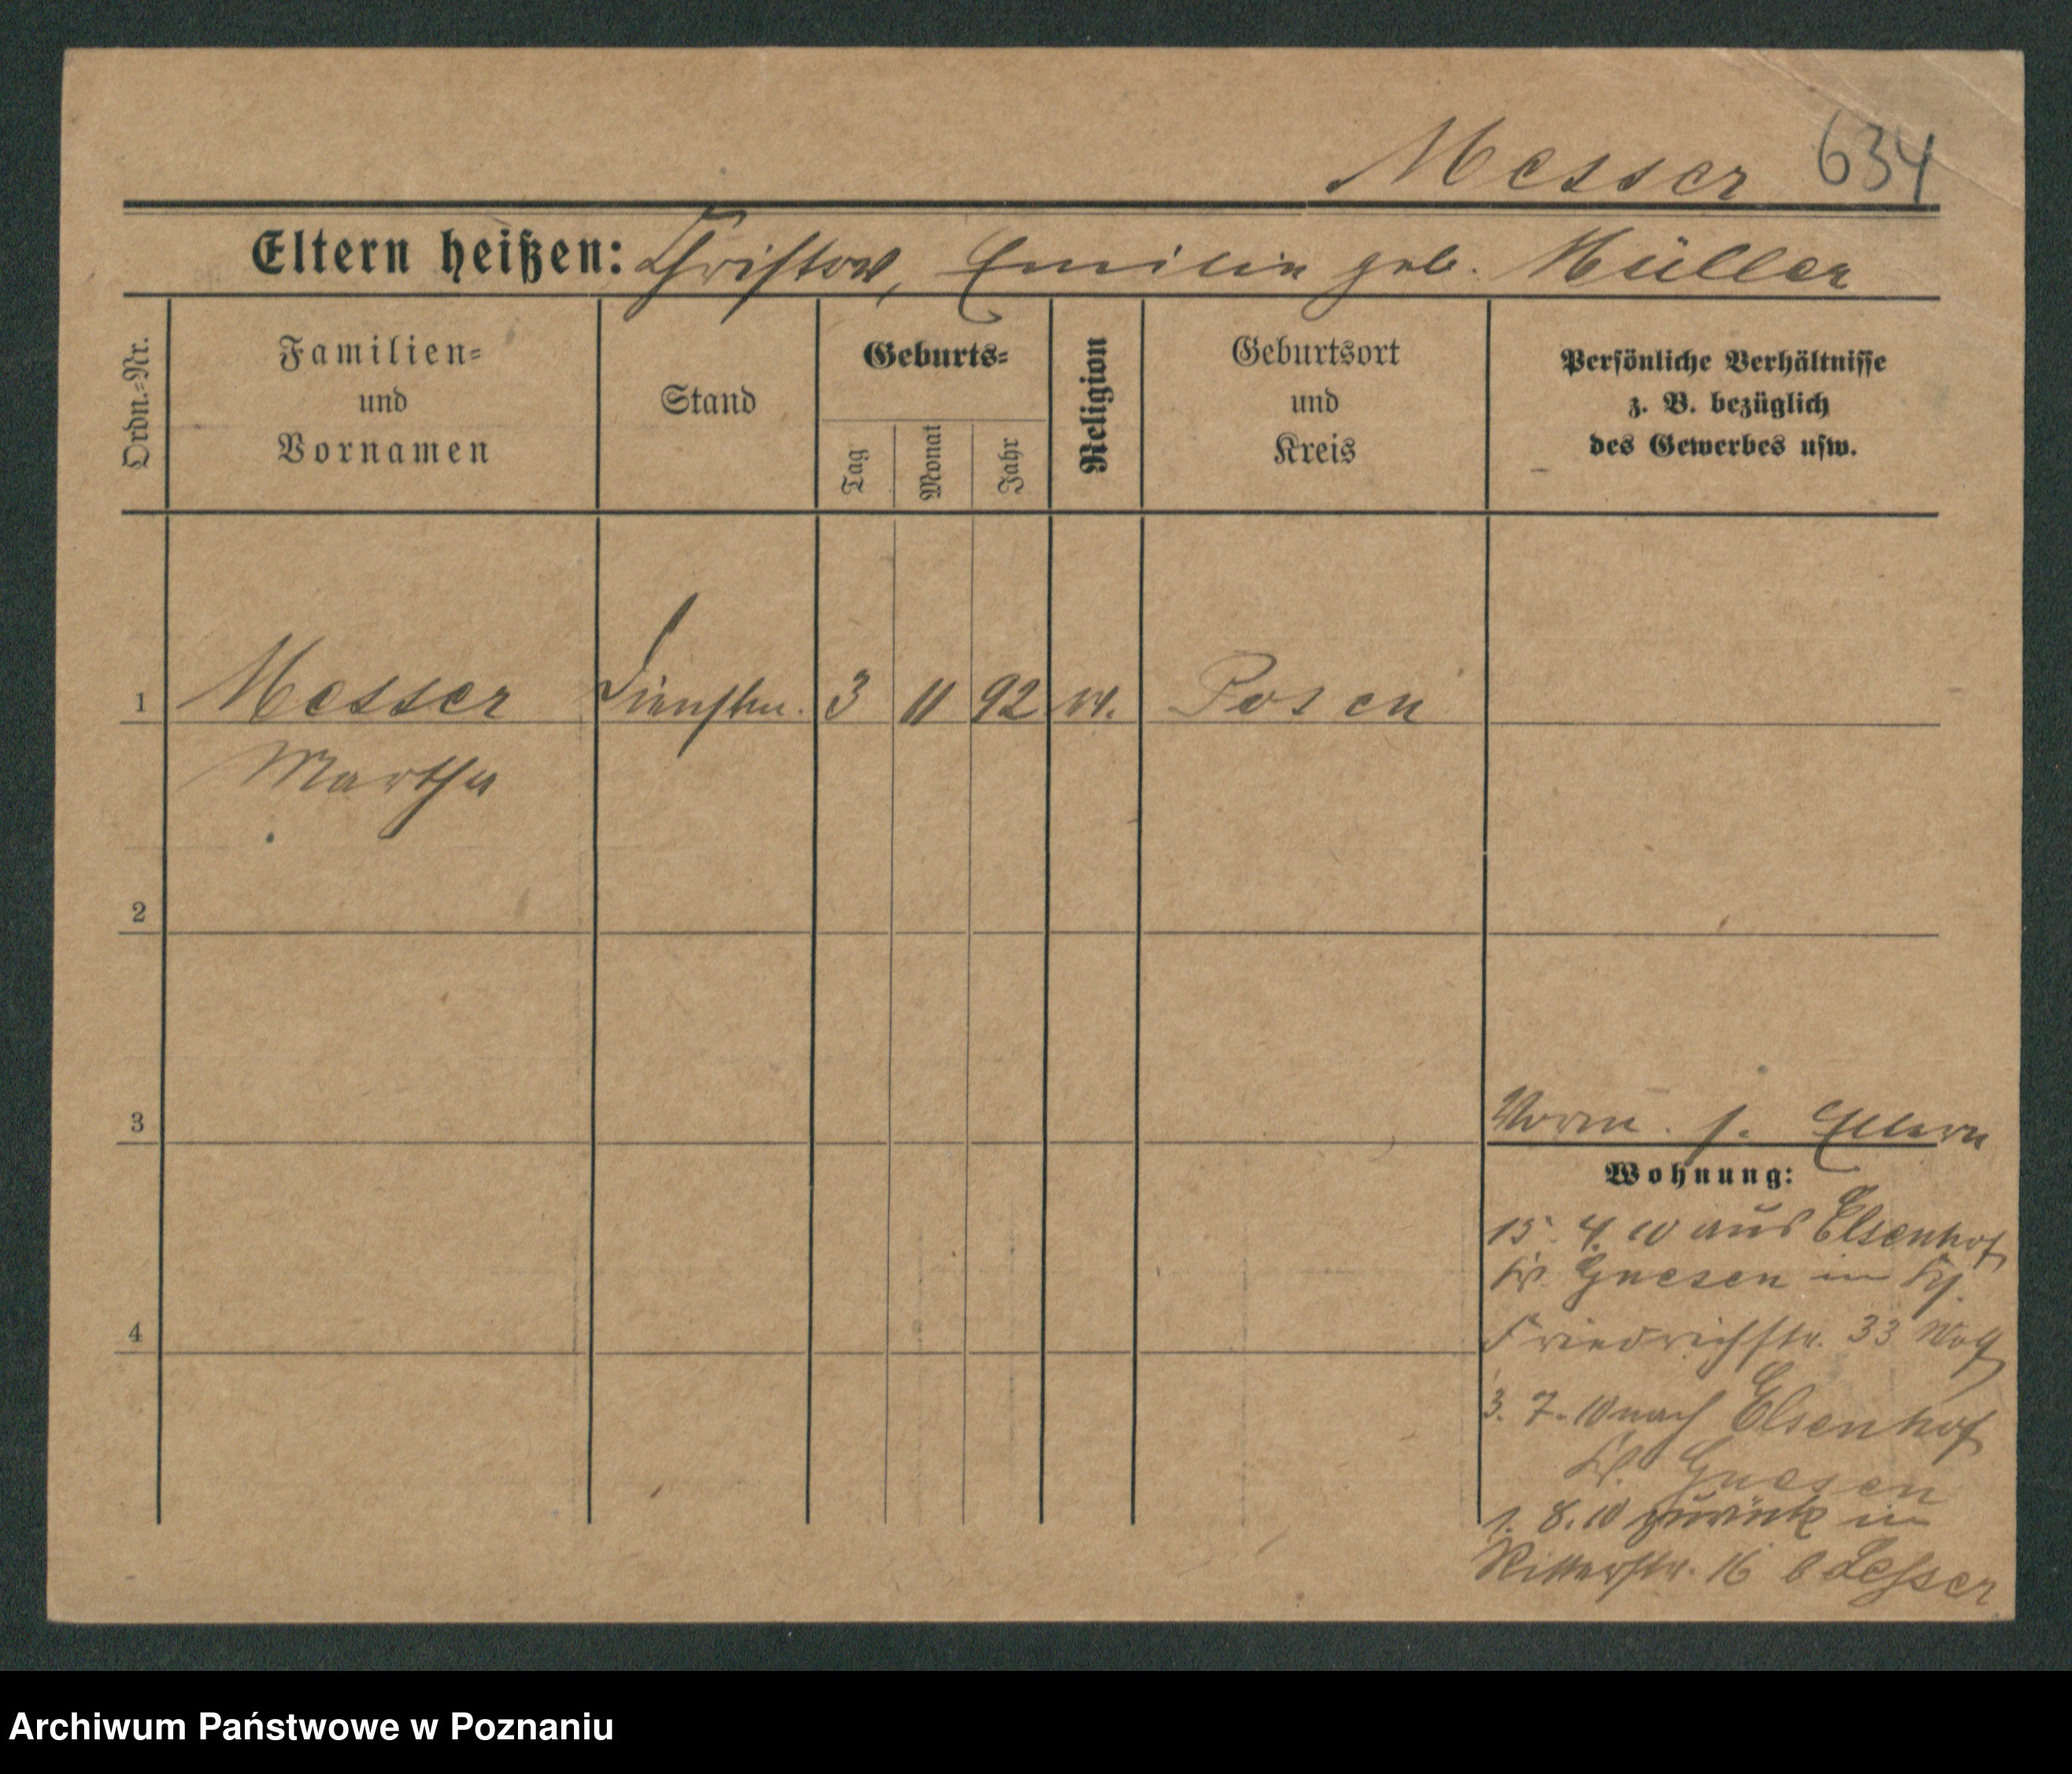 Messer 634
Eltern heißen: Christow, Emilie geb. Müller
Ordn.-Nr.
Familien-
und
Vornamen
Stand
Geburts-
Tag
Monat
Jahr
Religion
Geburtsort
und
Kreis
Persönliche Verhältnisse
z. B. bezüglich
des Gewerbes usw.
1 Messer 3 11 92 Posen
Martha
2
3
Eltern
Wohnung:
15. 4. 10 aus Elsenhof
Kr. Gnesen in
Friedrichstr. 33
4
3. 7. 10 nach Elsenhof
Kr. Gnesen
1. 8. 10 zurück in
Ritterstr. 16 b Lesser
Archiwum Państwowe w Poznaniu